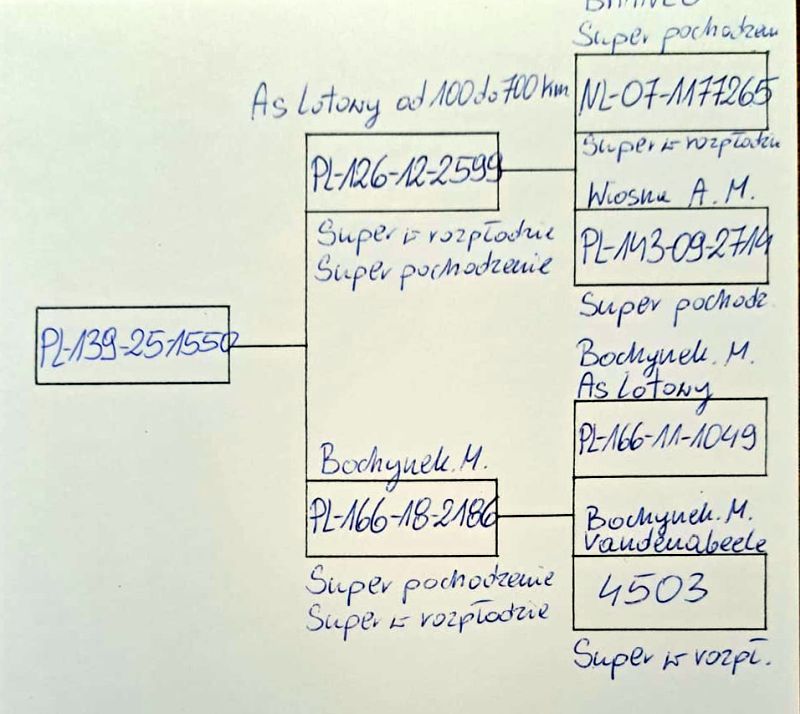 Super pochodzen
As lotowy od 100 do 700 km
NL-07-1177265
Super w rozpłodzie
PL-126-12-2599
Wiosna A. M.
Super w rozpłodzie
Super pochodzenie
PL-143-09-2714
Super pochodz.
PL-139-25-1550
Bochynek. M.
As lotowy
PL-166-11-1049
Bochynek. M.
PL-166-18-2186
Bochynek. M.
Vandenabeele
4503
Super pochodzenie
Super w rozpłodzie
Super w rozpł.